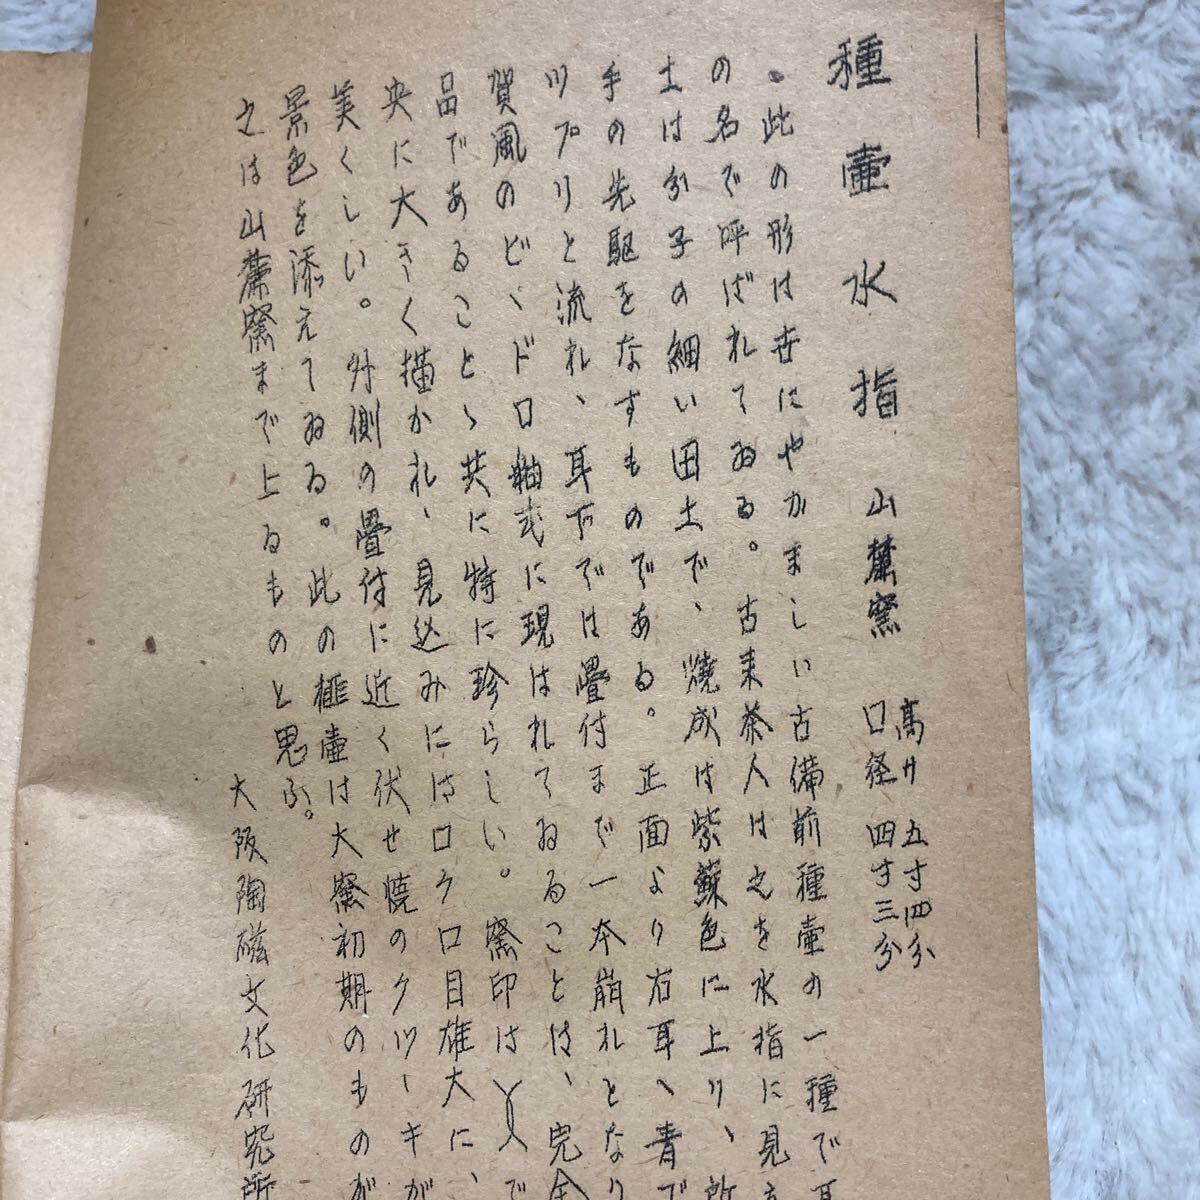 種壷水指 山麓窯 高サ 五寸四分
口径 四寸三分
・此の形は世にやかましい古備前種壷の一種で耳
の名で呼ばれてゐる。古来茶人は之を水指に見立
土は分子の細い田土で、焼成は紫蘇色に上り、所
手の先駆をなすものである。正面より右耳へ青で
ツプリと流れ、耳下では畳付まで一本崩れとなり
賀風のビヽドロ釉式に現はれてゐることは、完全
品であることゝ共に特に珍らしい。窯印は で
央に大きく描かれ、見込みにはロクロ目雄大に、
美くしい。外側の畳付に近く伏せ焼のクツヽキが
景色を添えてゐる。此の種壷は大窯初期のものが
之は山麓窯まで上るものと思ふ。
大阪陶磁文化研究所